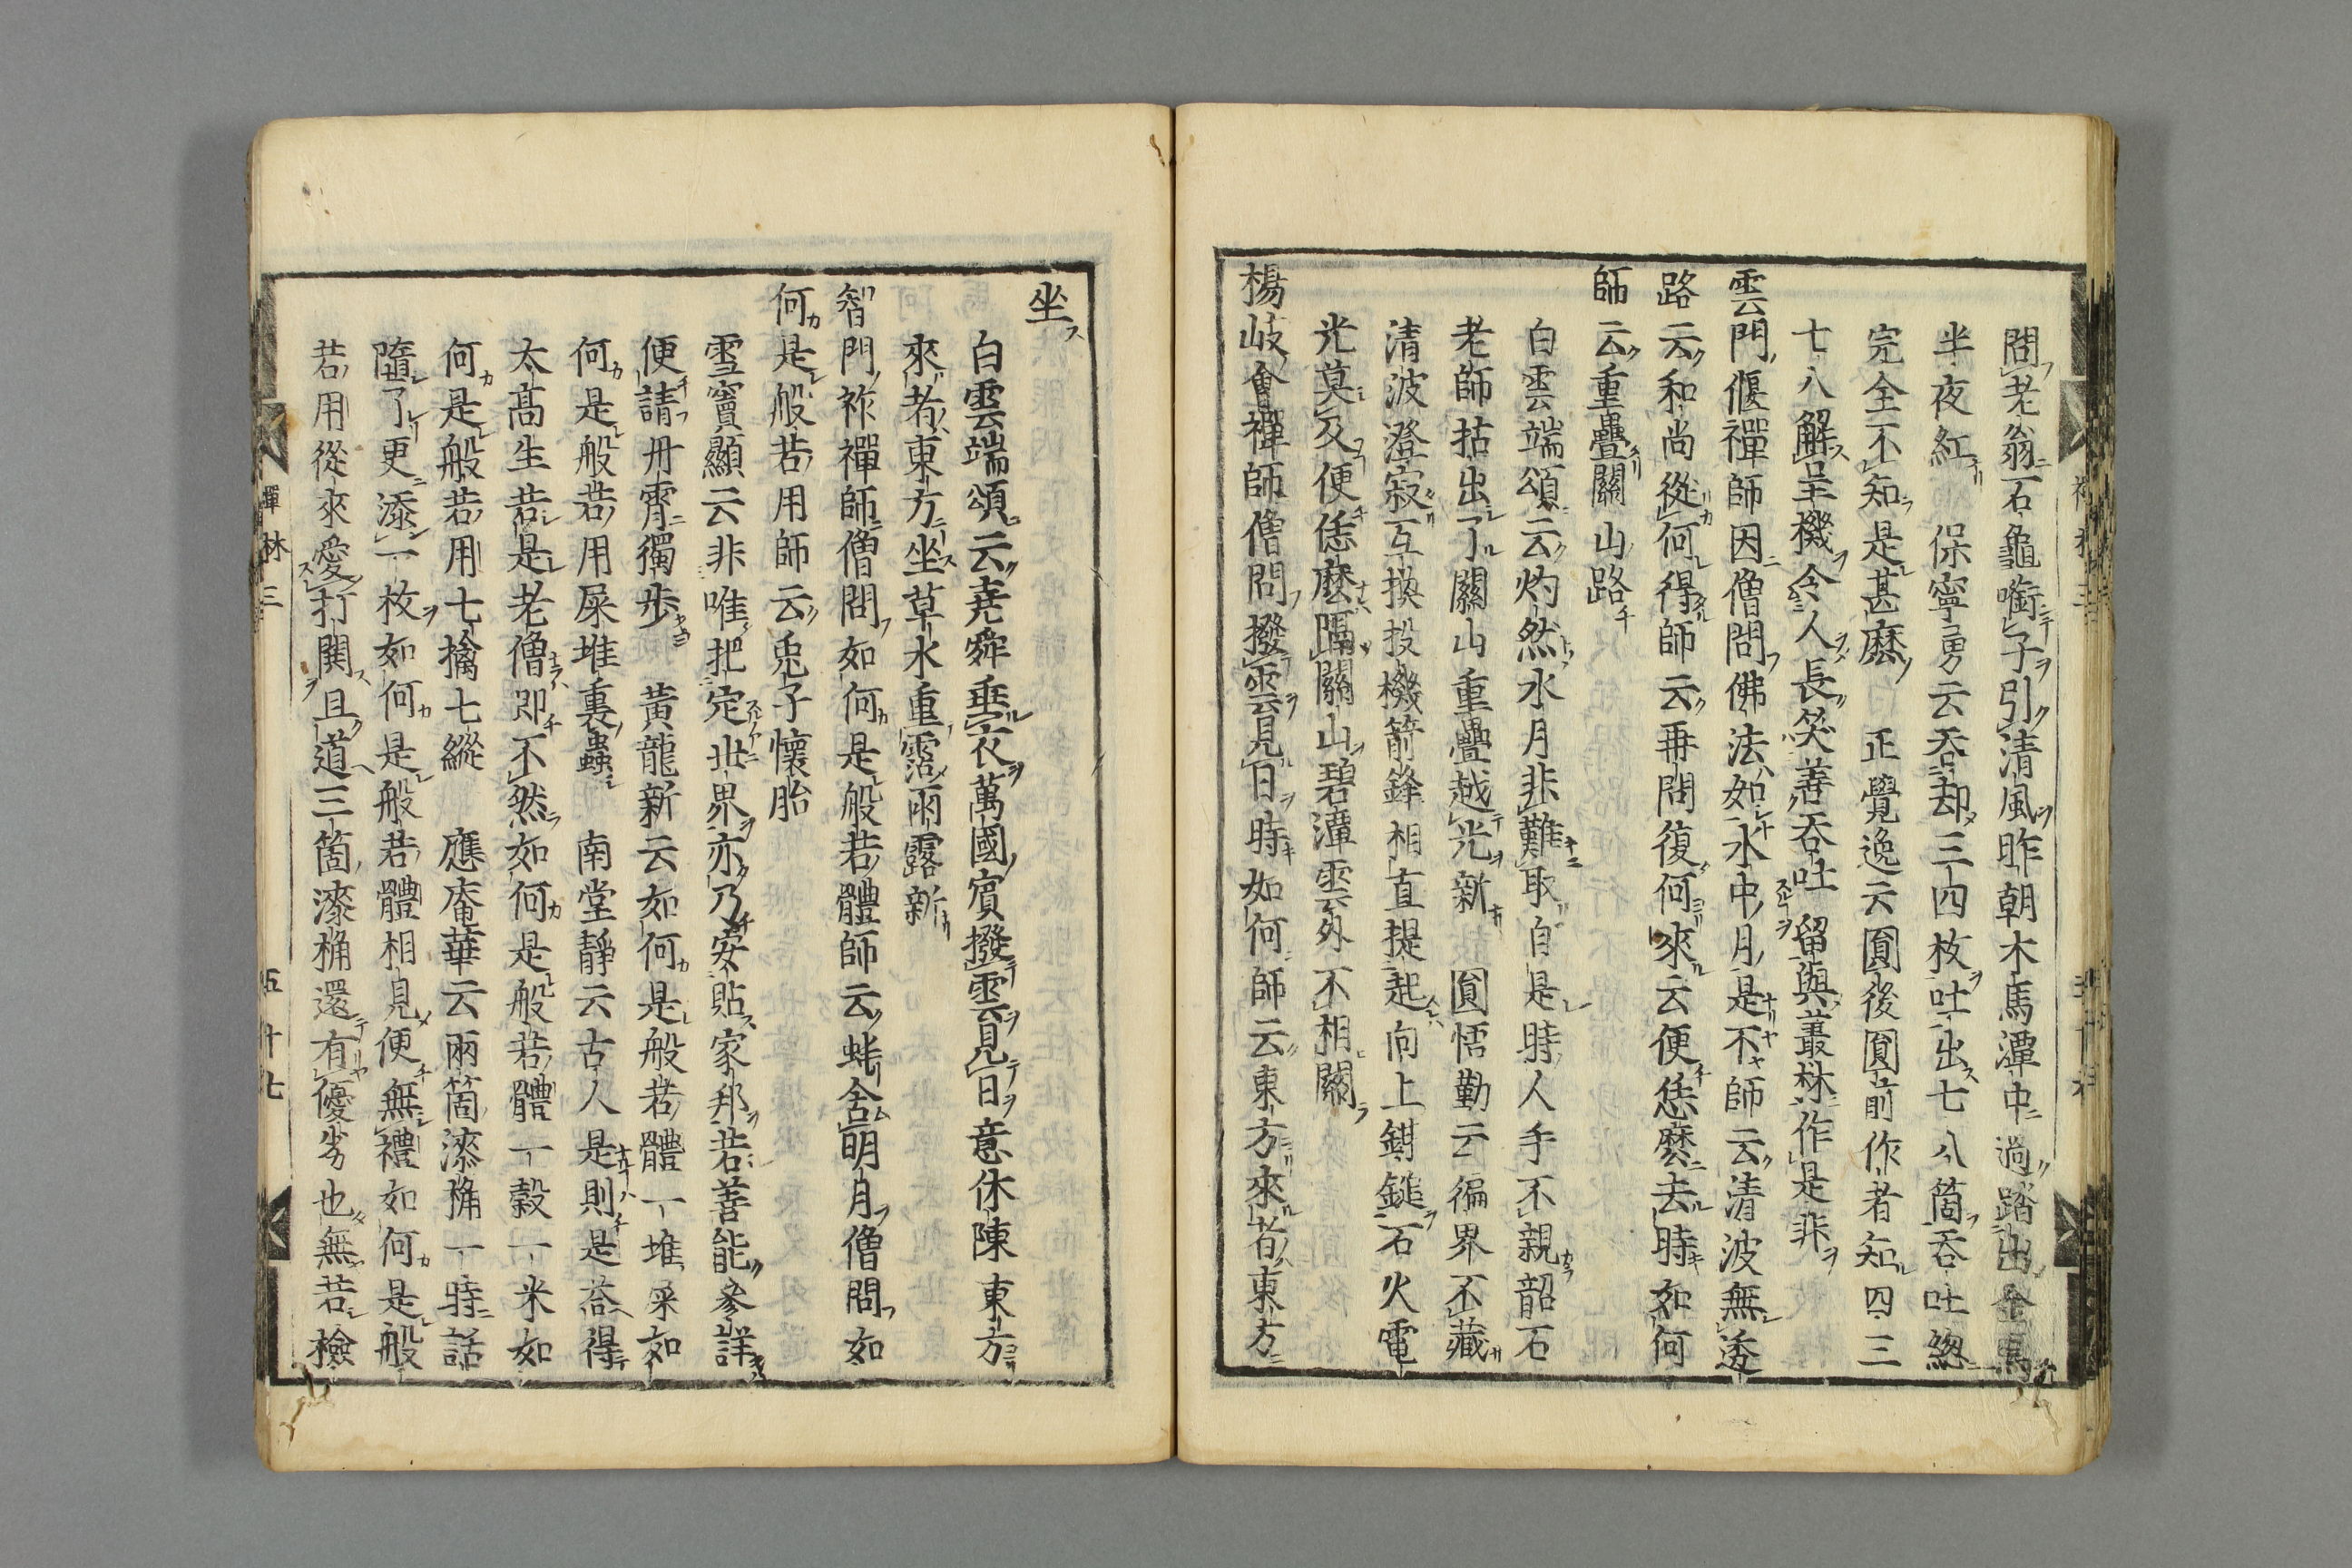 問老翁石龜銜子引清風昨朝木馬潭中過踏出金烏
半夜紅　保寧勇云吞却三四枚吐出七八箇吞吐總
完全不知是甚麽　正覺逸云圓後圓前作者知四三
七八解呈機令人長笑善吞吐留與叢林作是非
雲門偃禪師因僧問佛法如水中月是不師云清波無透
路云和尚從何得師云再問復何來云便恁麽去時如何
師云重疊關山路
白雲端頌云灼然水月非難取自是時人手不親韶石
老師拈出了關山重疊越光新　圓悟勤云徧界不藏
清波澄寂互換投機箭鋒相直提起向上鉗鎚石火電
光莫及便恁麽隔關山碧潭雲外不相關
楊岐會禪師僧問撥雲見日時如何師云東方來者東方
坐
白雲端頌云堯舜垂衣萬國賓撥雲見日意休陳東方
來者東方坐草木重霑雨露新
智門祚禪師僧問如何是般若體師云蚌含明月僧問如
何是般若用師云兎子懷胎
雪竇顯云非唯把定世界亦乃安貼家邦若善能參詳
便請丹霄獨步　黃龍新云如何是般若體一堆屎如
何是般若用屎堆裏蟲　南堂靜云古人是則是蓋得
太高生若是老僧即不然如何是般若體一穀一米如
何是般若用七擒七縱　應庵華云兩箇漆桶一時話
隨了更添一枚如何是般若體相見便無禮如何是般
若用從來愛打關且道三箇漆桶還有優劣也無若檢
禪林三
五十七